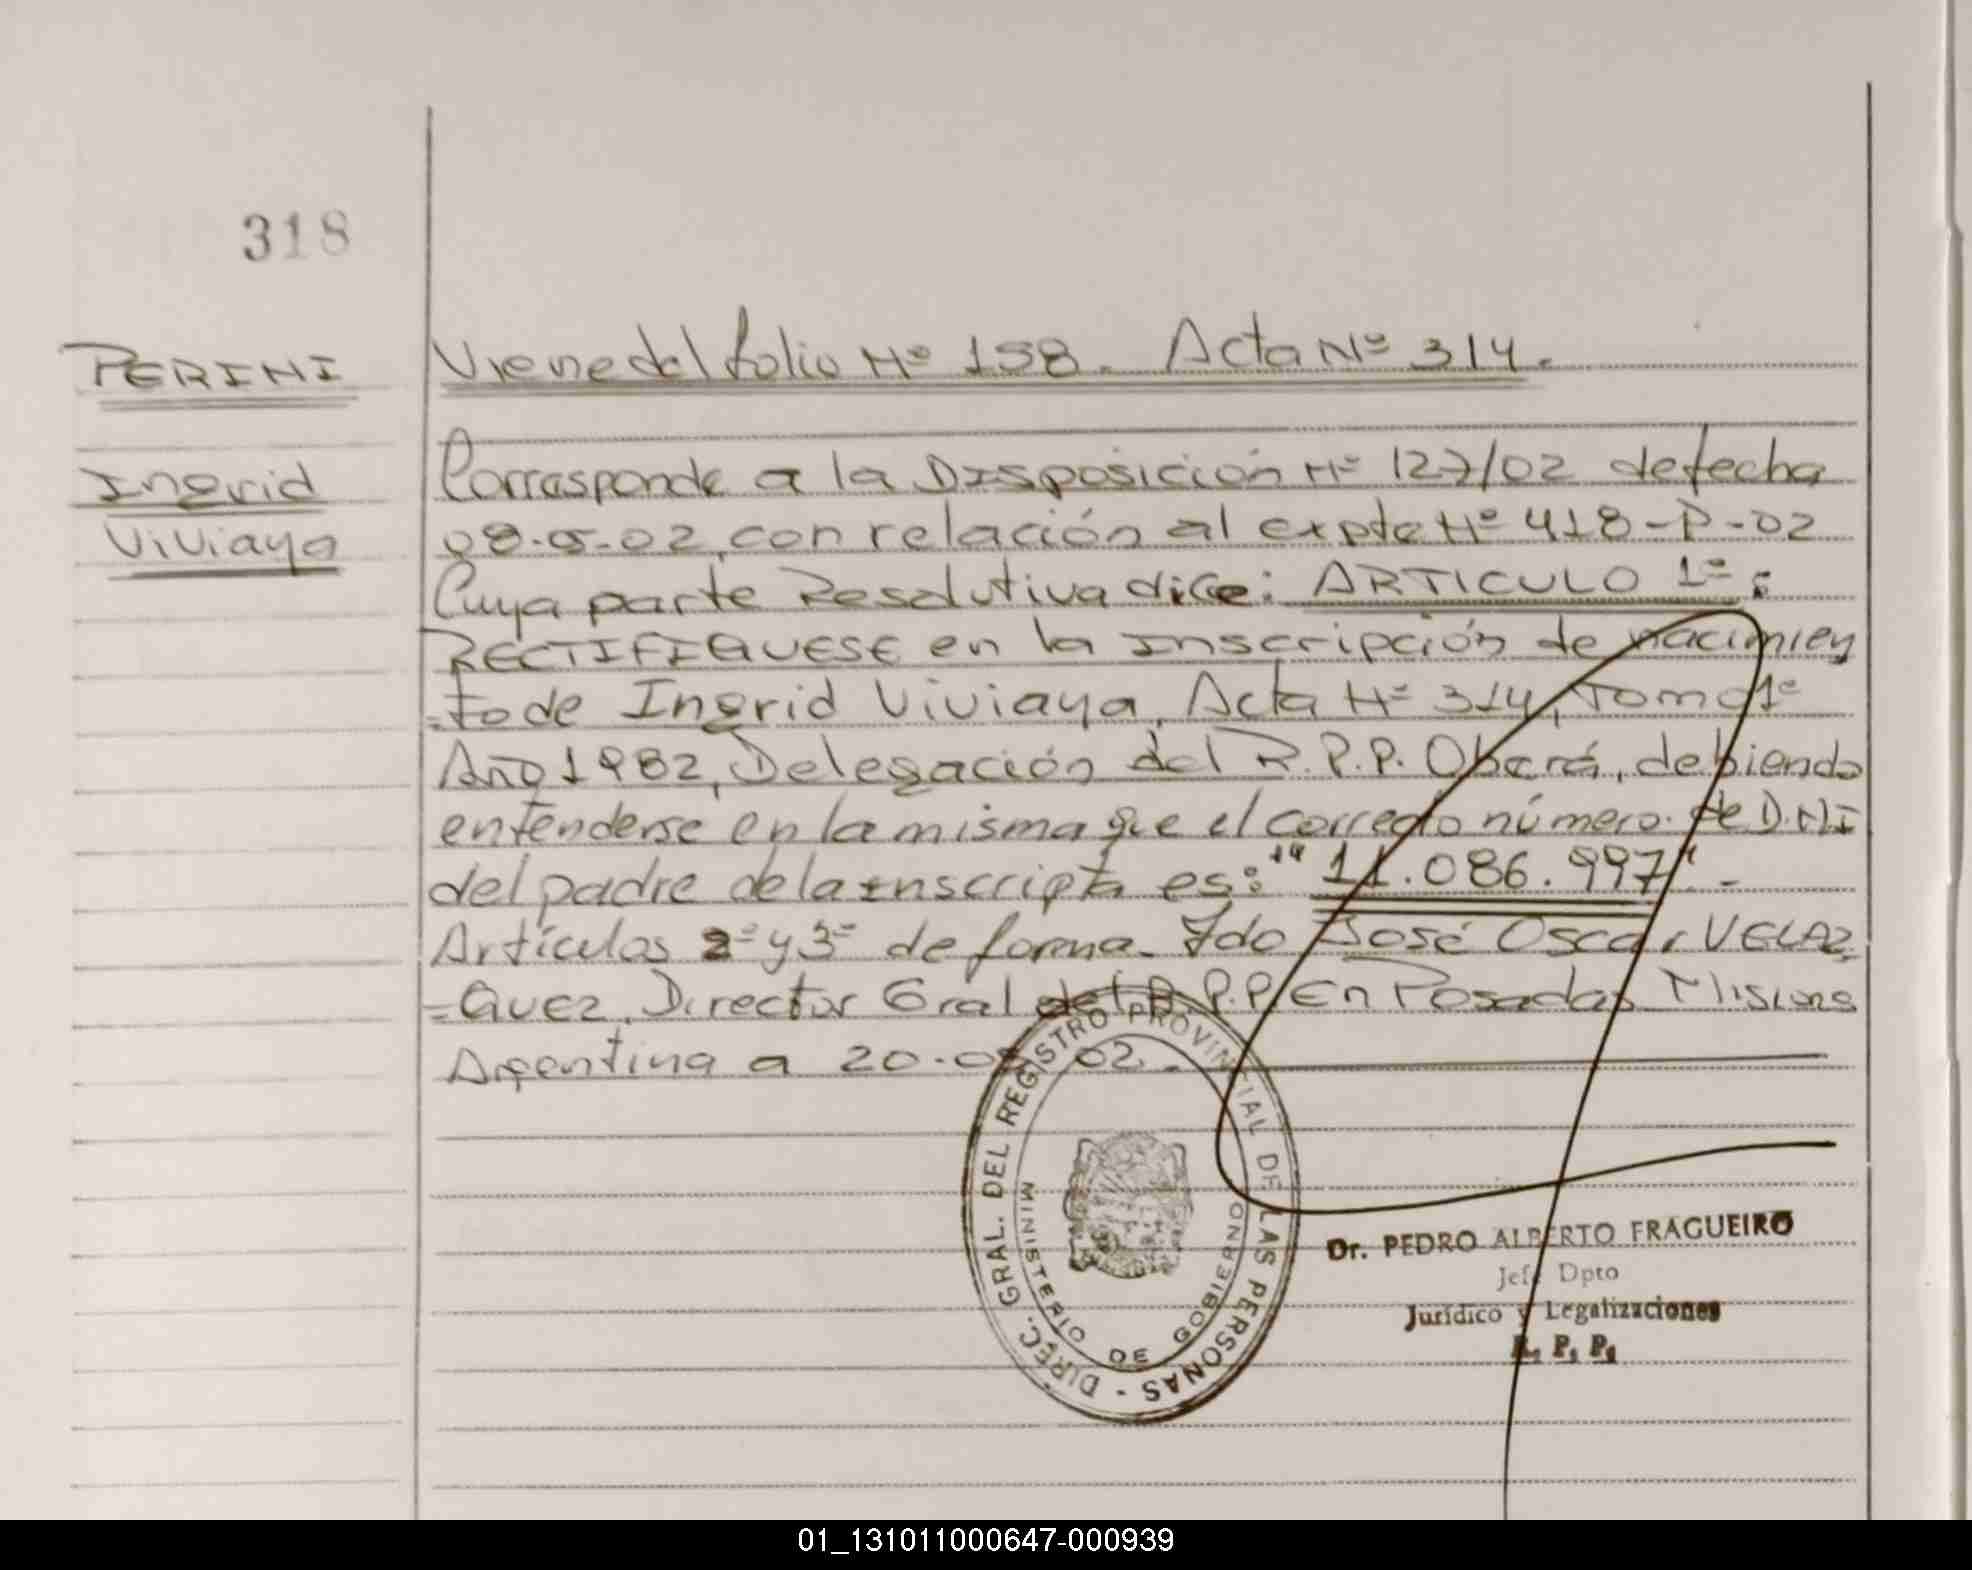 318
PERINI
Ingrid
Viviaya
Viene del folio Nº 158. Acta Nº 314.
Corresponde a la Disposición Nº 127/02 de fecha
08-5-02, con relación al expte Nº 418-P-02
Cuya parte Resolutiva dice: ARTICULO 1º:
RECTIFIQUESE en la Inscripción de nacimien
=to de Ingrid Viviaya, Acta Nº 314, Tomo 1º
Año 1982, Delegación del R.P.P. Oberá, debiendo
entenderse en la misma que el correcto número de D.N.I
del padre de la inscripta es: "11.086.997".-
Artículos 2º y 3º de forma. Fdo José Oscar VELAZ
=QUEZ. Director Gral del R.P.P. En Posadas Misiones
Argentina a 20-05-02.
DIREC. GRAL. DEL REGISTRO PROVINCIAL DE LAS PERSONAS -
MINISTERIO DE GOBIERNO
Dr. PEDRO ALBERTO FRAGUEIRO
Jefe Dpto
Jurídico y Legalizaciones
R. P. P.
01_131011000647-000939